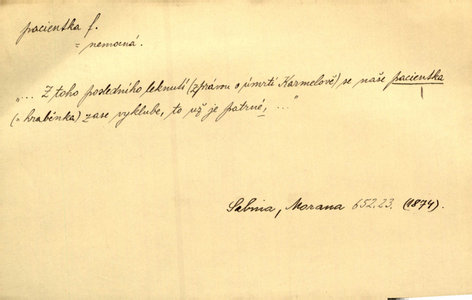 pacientka f.
= nemocná.
"... Z toho posledního leknutí (zprávou o úmrtí Karmelově) se naše pacientka
(= hraběnka) zase vyklube, to už je patrné, ..."
Sabina, Morana 652.23. (1874).